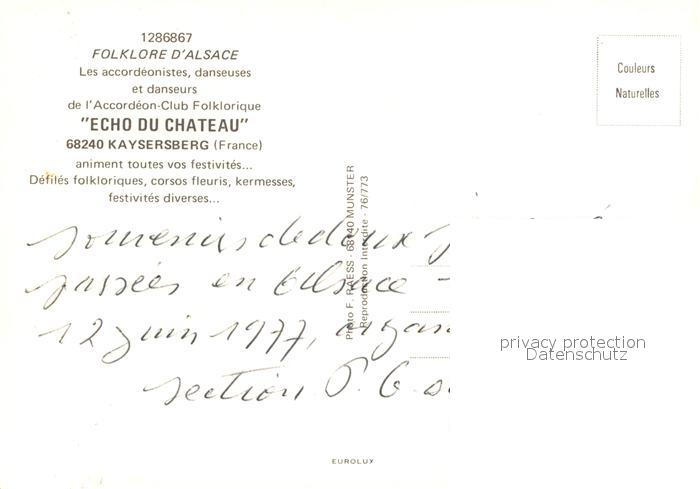 1286867
FOLKLORE D'ALSACE
Les accordéonistes, danseuses
et danseurs
de l'Accordéon-Club Folklorique
"ECHO DU CHATEAU"
68240 KAYSERSBERG (France)
animent toutes vos festivités...
Défilés folkloriques, corsos fleuris, kermesses,
festivités diverses...
Couleurs
Naturelles
Photo F. RAESS - 68140 MUNSTER
Reproduction Interdite - 76/773
souvenirs de deux
passées en Alsace -
12 juin 1977,
section P. G
privacy protection
Datenschutz
EUROLUX